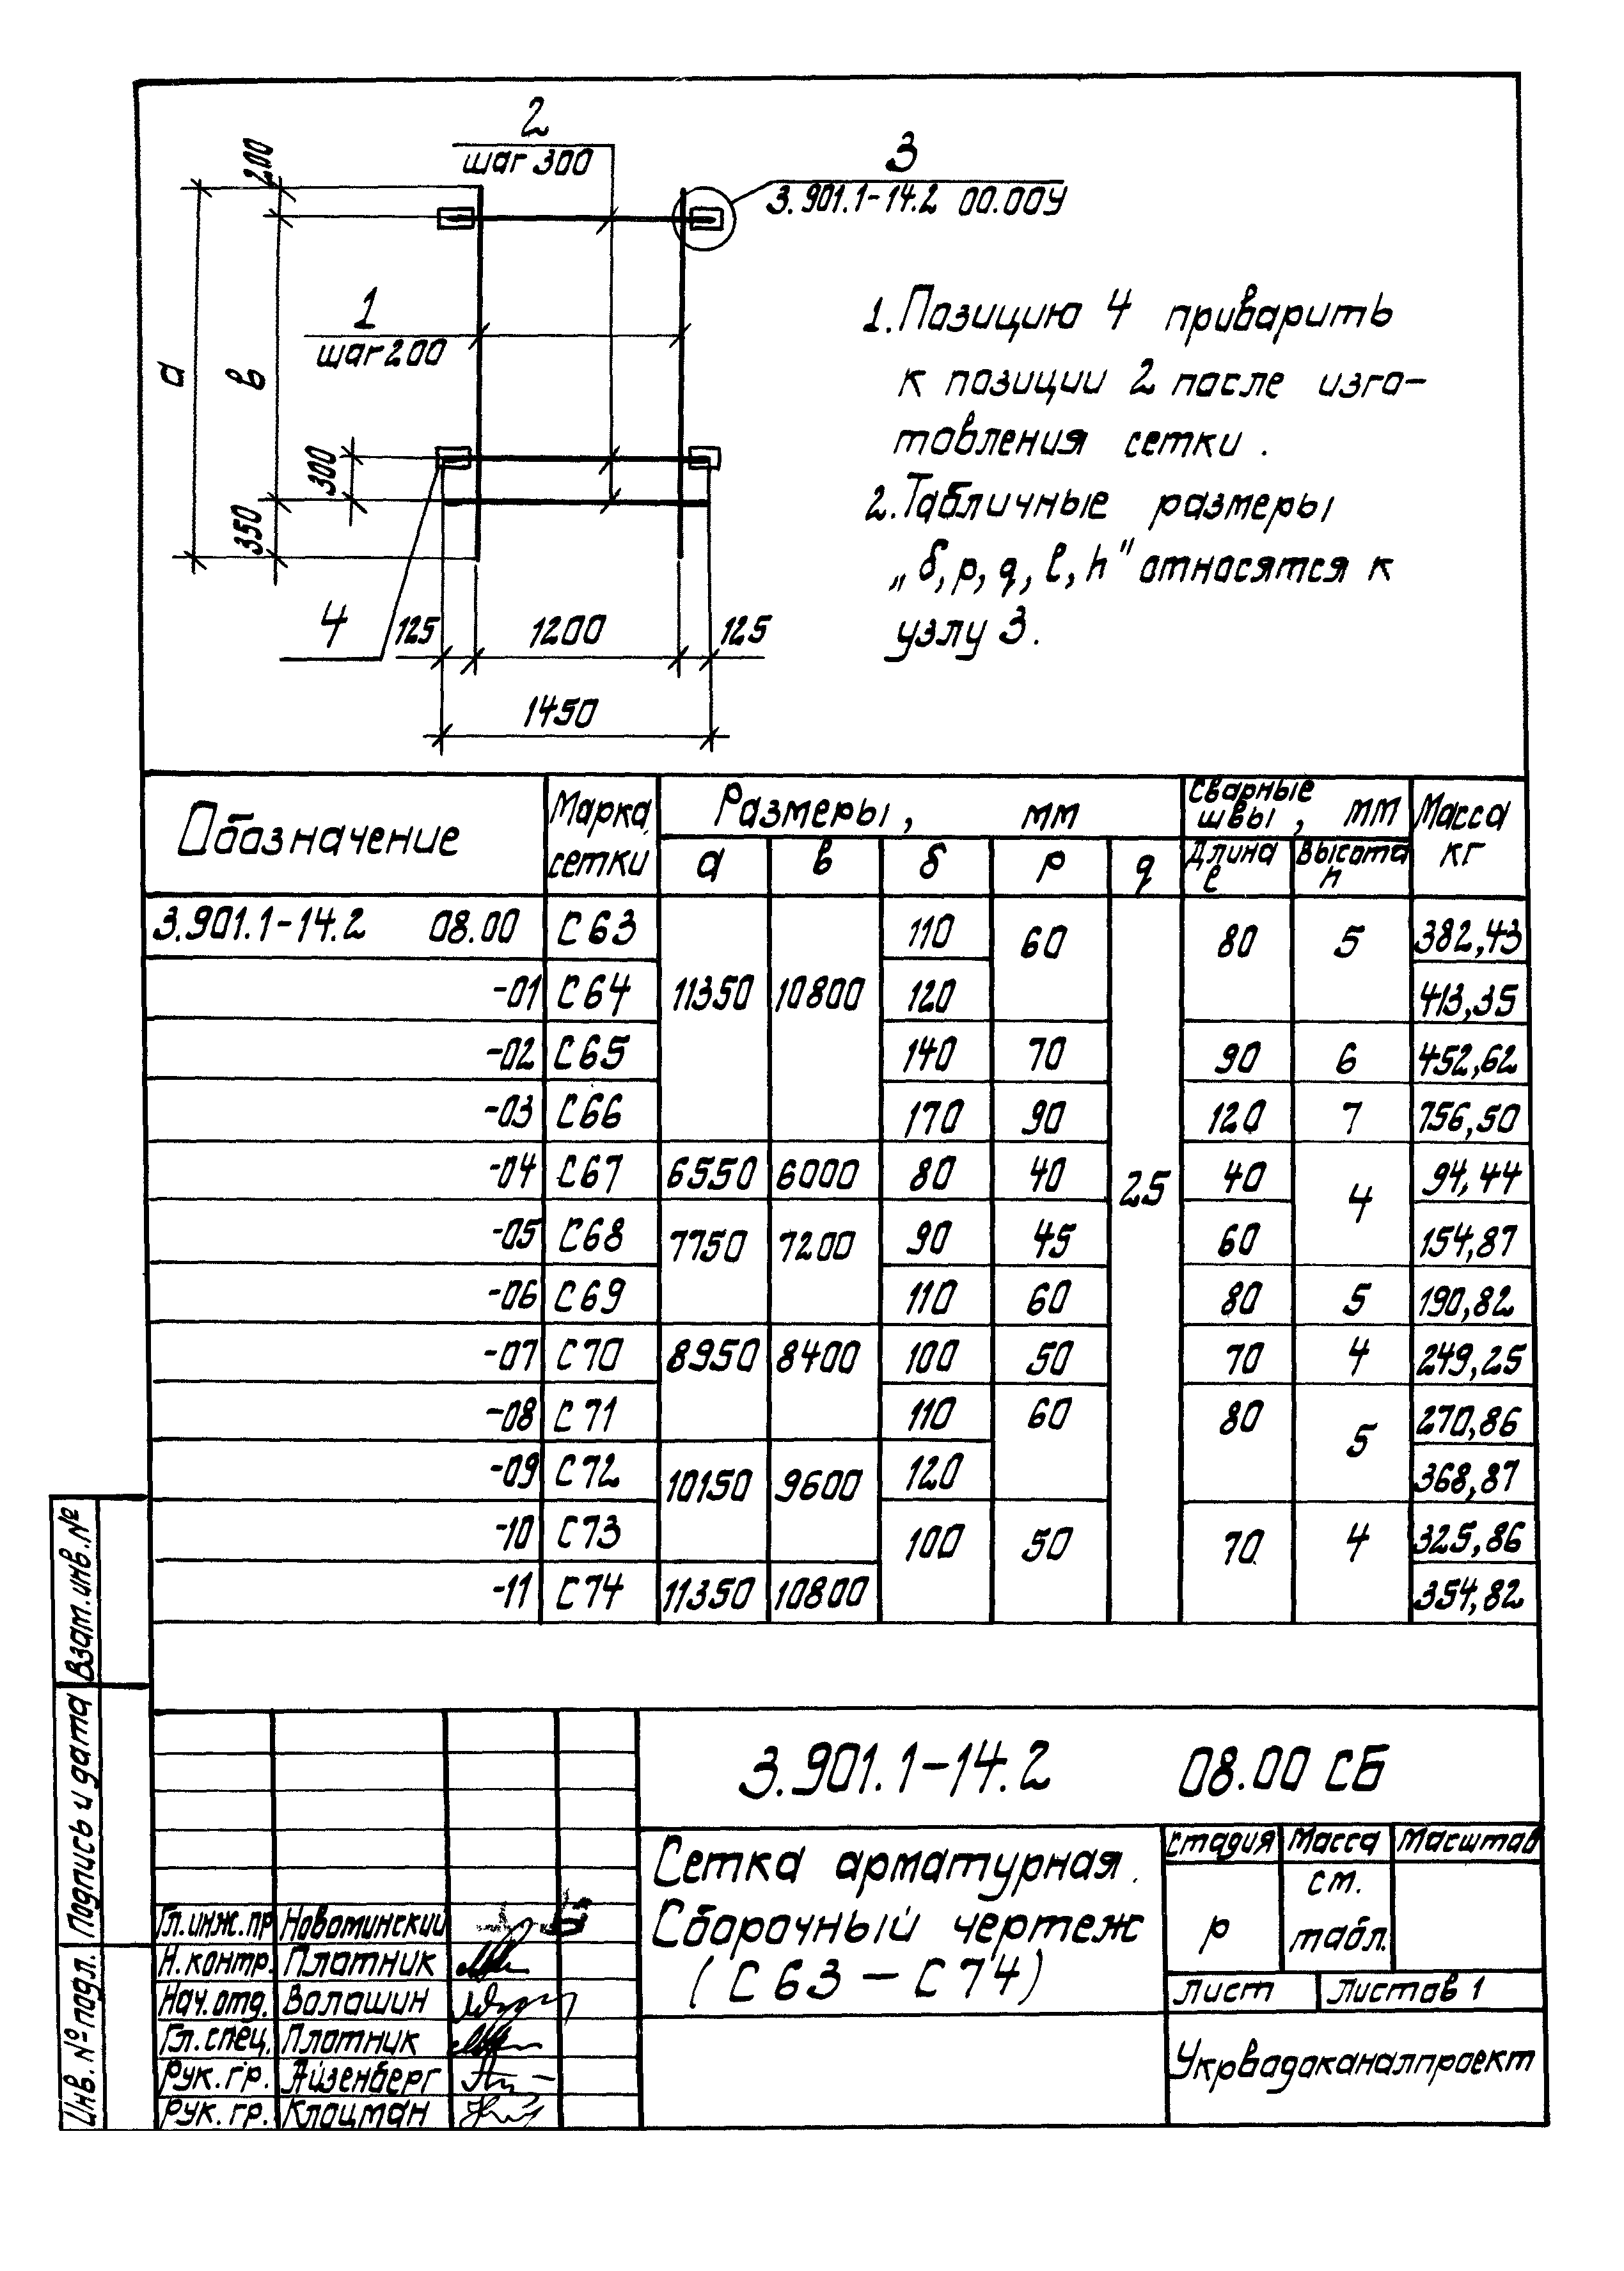 2
шаг 300
3
3.901.1-14.2 00.00У
200
1
шаг 200
а
в
300
350
4
125
1200
125
1450
1. Позицию 4 приварить
к позиции 2 после изго-
товления сетки .
2. Табличные размеры
„ δ, р, q, ℓ, h" относятся к
узлу 3.
Обозначение
Марка сетки
Размеры , мм
Сварные швы , мм
Масса кг
а в δ р q Длина ℓ Высота h
3.901.1-14.2 08.00 С63 11350 10800 110 60 25 80 5 382,43
-01 С64 120 413,35
-02 С65 140 70 90 6 452,62
-03 С66 170 90 120 7 756,50
-04 С67 6550 6000 80 40 40 4 94,44
-05 С68 7750 7200 90 45 60 154,87
-06 С69 110 60 80 5 190,82
-07 С70 8950 8400 100 50 70 4 249,25
-08 С71 110 60 80 5 270,86
-09 С72 10150 9600 120 368,87
-10 С73 100 50 70 4 325,86
-11 С74 11350 10800 354,82
3.901.1-14.2 08.00 СБ
Сетка арматурная.
Сборочный чертеж
( С 63 – С 74)
Стадия Масса Масштаб
р
см.
табл.
Лист Листов 1
Укрводоканалпроект
Гл.инж.пр Новоминский
Н.контр. Платник
Нач.отд. Волошин
Гл.спец. Плотник
Рук.гр. Айзенберг
Рук.гр. Клоцман
Взам.инв.№
Подпись и дата
Инв.№ подл.